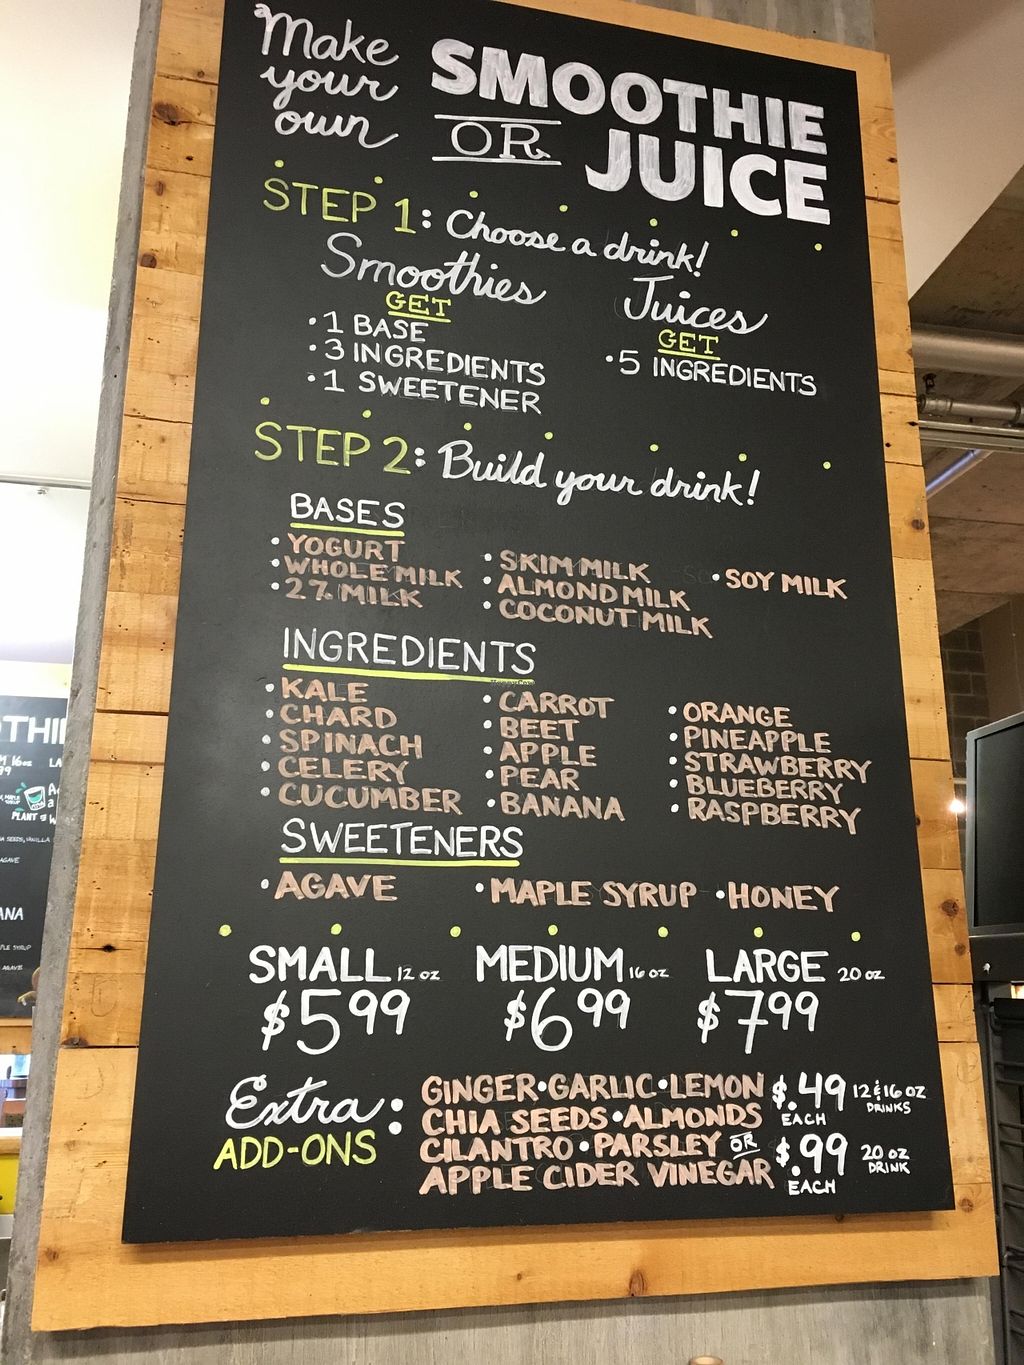 Make your own
SMOOTHIE
OR
JUICE
STEP 1: Choose a drink!
Smoothies
GET
• 1 BASE
• 3 INGREDIENTS
• 1 SWEETENER
Juices
GET
• 5 INGREDIENTS
STEP 2: Build your drink!
BASES
• YOGURT
• WHOLE MILK
• 2% MILK
• SKIM MILK
• ALMOND MILK
• COCONUT MILK
• SOY MILK
INGREDIENTS
• KALE
• CHARD
• SPINACH
• CELERY
• CUCUMBER
• CARROT
• BEET
• APPLE
• PEAR
• BANANA
• ORANGE
• PINEAPPLE
• STRAWBERRY
• BLUEBERRY
• RASPBERRY
SWEETENERS
• AGAVE • MAPLE SYRUP • HONEY
SMALL 12 oz MEDIUM 16 oz LARGE 20 oz
$5.99 $6.99 $7.99
Extra:
ADD-ONS
GINGER • GARLIC • LEMON
CHIA SEEDS • ALMONDS
CILANTRO • PARSLEY OR
APPLE CIDER VINEGAR
$.49 12 & 16 OZ
EACH DRINKS
$.99 20 OZ
EACH DRINK
16oz
PLANT
AGAVE
AGAVE